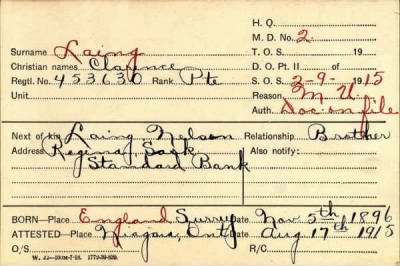 H. Q.
M. D. No. 2
Surname Laing
Christian names Clarence
T. O. S. 19
Regtl. No. 453630 Rank Pte
D. O. Pt. II of
Unit
S. O. S. 2-9- 1915
Reason M U
Auth. Doc on file
Next of kin Laing Nelson Relationship Brother
Address Regina, Sask Also notify:
Standard Bank
BORN—Place England Surrey Date Nov 5th 1896
ATTESTED—Place Niagara, Ont Date Aug 17th 1915
O/S R/C